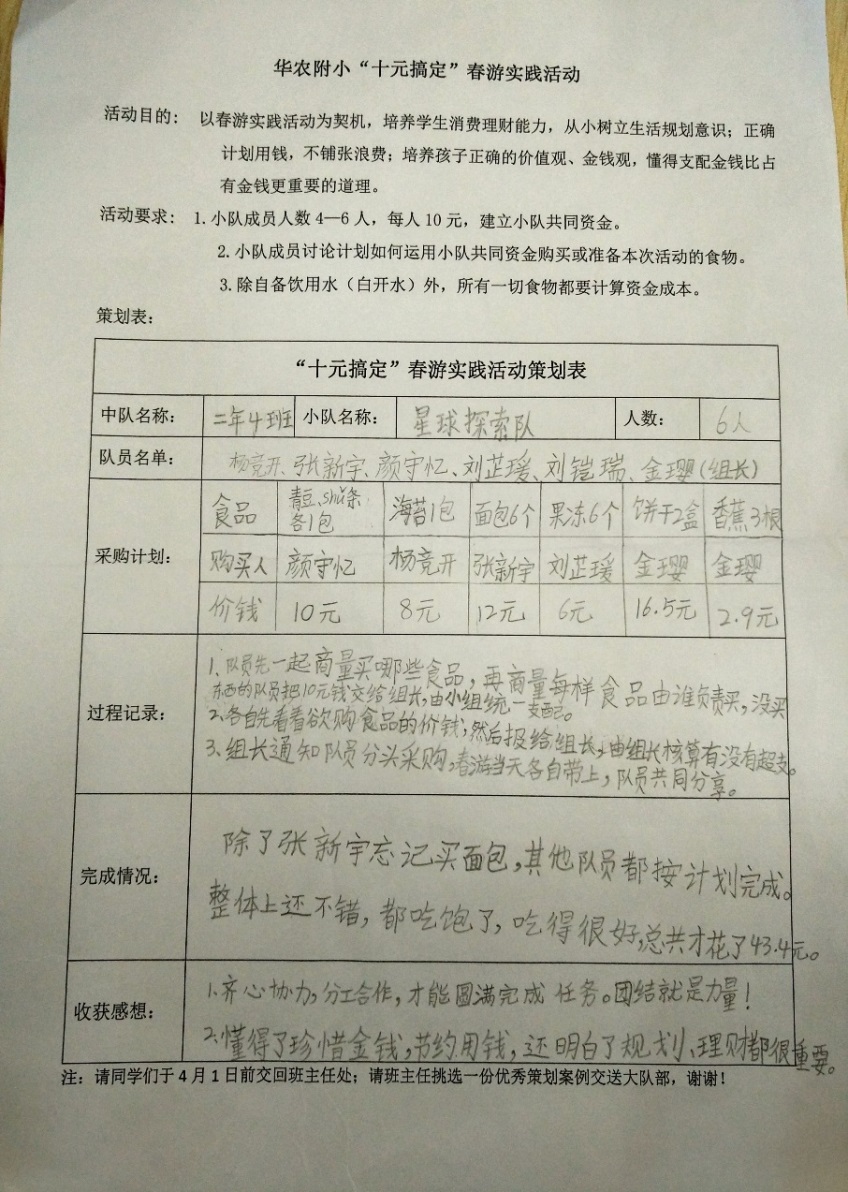 华农附小“十元搞定”春游实践活动
活动目的： 以春游实践活动为契机，培养学生消费理财能力，从小树立生活规划意识；正确
计划用钱，不铺张浪费；培养孩子正确的价值观、金钱观，懂得支配金钱比占
有金钱更重要的道理。
活动要求： 1.小队成员人数4—6人，每人10元，建立小队共同资金。
2.小队成员讨论计划如何运用小队共同资金购买或准备本次活动的食物。
3.除自备饮用水（白开水）外，所有一切食物都要计算资金成本。
策划表：
“十元搞定”春游实践活动策划表
中队名称： 二年4班 小队名称： 星球探索队 人数： 6人
队员名单： 杨竞开、张新宇、颜守忆、刘芷瑗、刘铠瑞、金璎(组长)
采购计划：
食品 青豆、shǔ条各1包 海苔1包 面包6个 果冻6个 饼干2盒 香蕉3根
购买人 颜守忆 杨竞开 张新宇 刘芷瑗 金璎 金璎
价钱 10元 8元 12元 6元 16.5元 2.9元
过程记录：
1、队员先一起商量买哪些食品，再商量每样食品由谁负责买，没买
东西的队员把10元钱交给组长，由小组统一支配。
2、各自先看看欲购食品的价钱，然后报给组长，由组长核算有没有超支。
3、组长通知队员分头采购，春游当天各自带上，队员共同分享。
完成情况：
除了张新宇忘记买面包，其他队员都按计划完成。
整体上还不错，都吃饱了，吃得很好，总共才花了43.4元。
收获感想：
1.齐心协力，分工合作，才能圆满完成任务。团结就是力量！
2.懂得了珍惜金钱，节约用钱，还明白了规划、理财都很重要。
注：请同学们于4月1日前交回班主任处；请班主任挑选一份优秀策划案例交送大队部，谢谢！